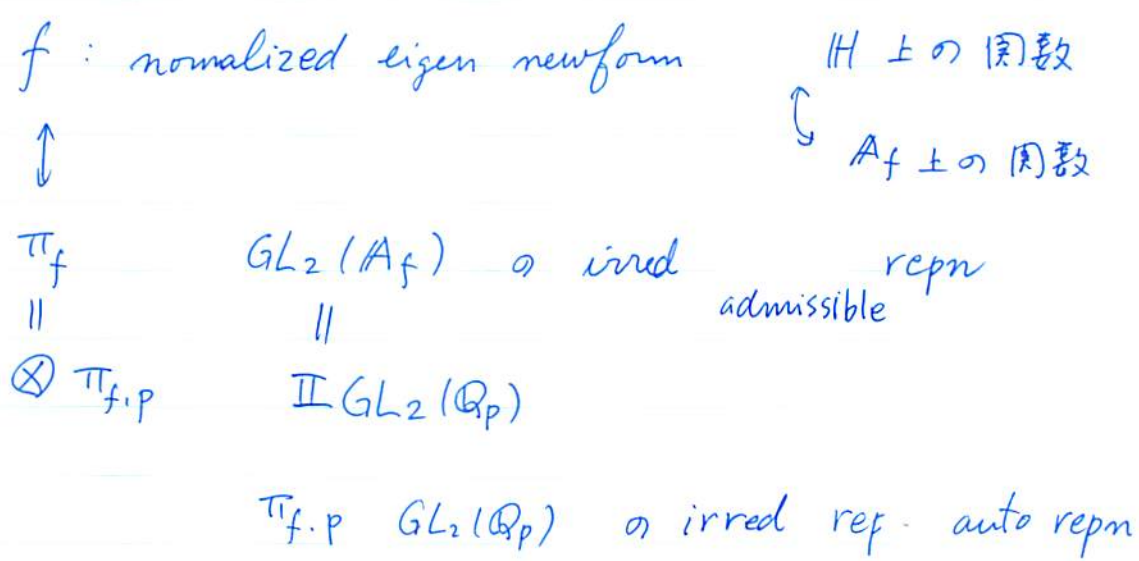 f : normalized eigen newform ℍ 上の関数
↕
𝔸_f 上の関数
↕
π_f GL₂(𝔸_f) の irred admissible repn
|| ||
⊗ π_{f,p} ∐ GL₂(ℚ_p)
π_{f,p} GL₂(ℚ_p) の irred rep. auto repn